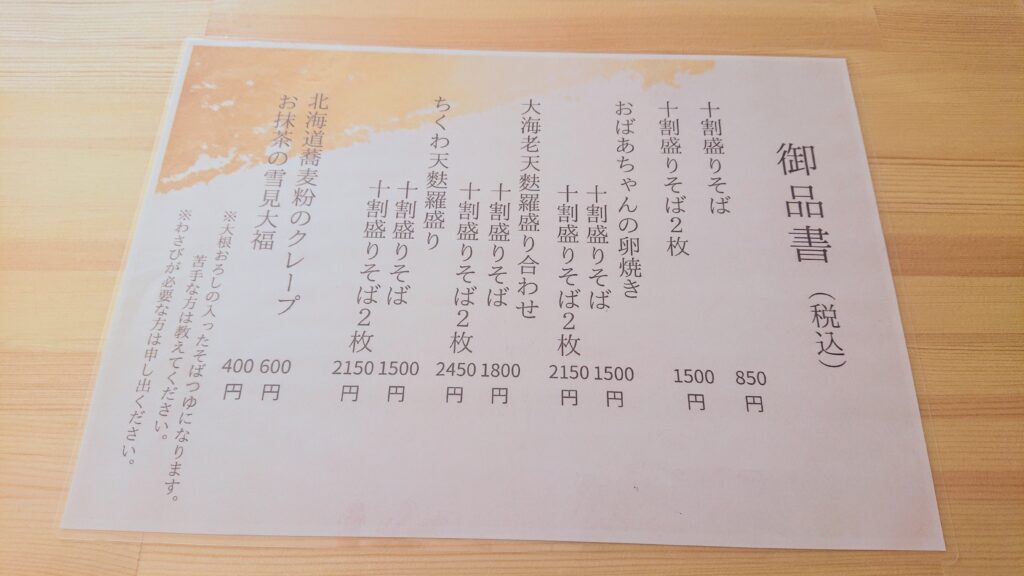 御品書（税込）
十割盛りそば 850円
十割盛りそば２枚 1500円
おばあちゃんの卵焼き
十割盛りそば 1500円
十割盛りそば２枚 2150円
大海老天麩羅盛り合わせ
十割盛りそば 1800円
十割盛りそば２枚 2450円
ちくわ天麩羅盛り
十割盛りそば 1500円
十割盛りそば２枚 2150円
北海道蕎麦粉のクレープ 600円
お抹茶の雪見大福 400円
※大根おろしの入ったそばつゆになります。
苦手な方は教えてください。
※わさびが必要な方は申し出ください。